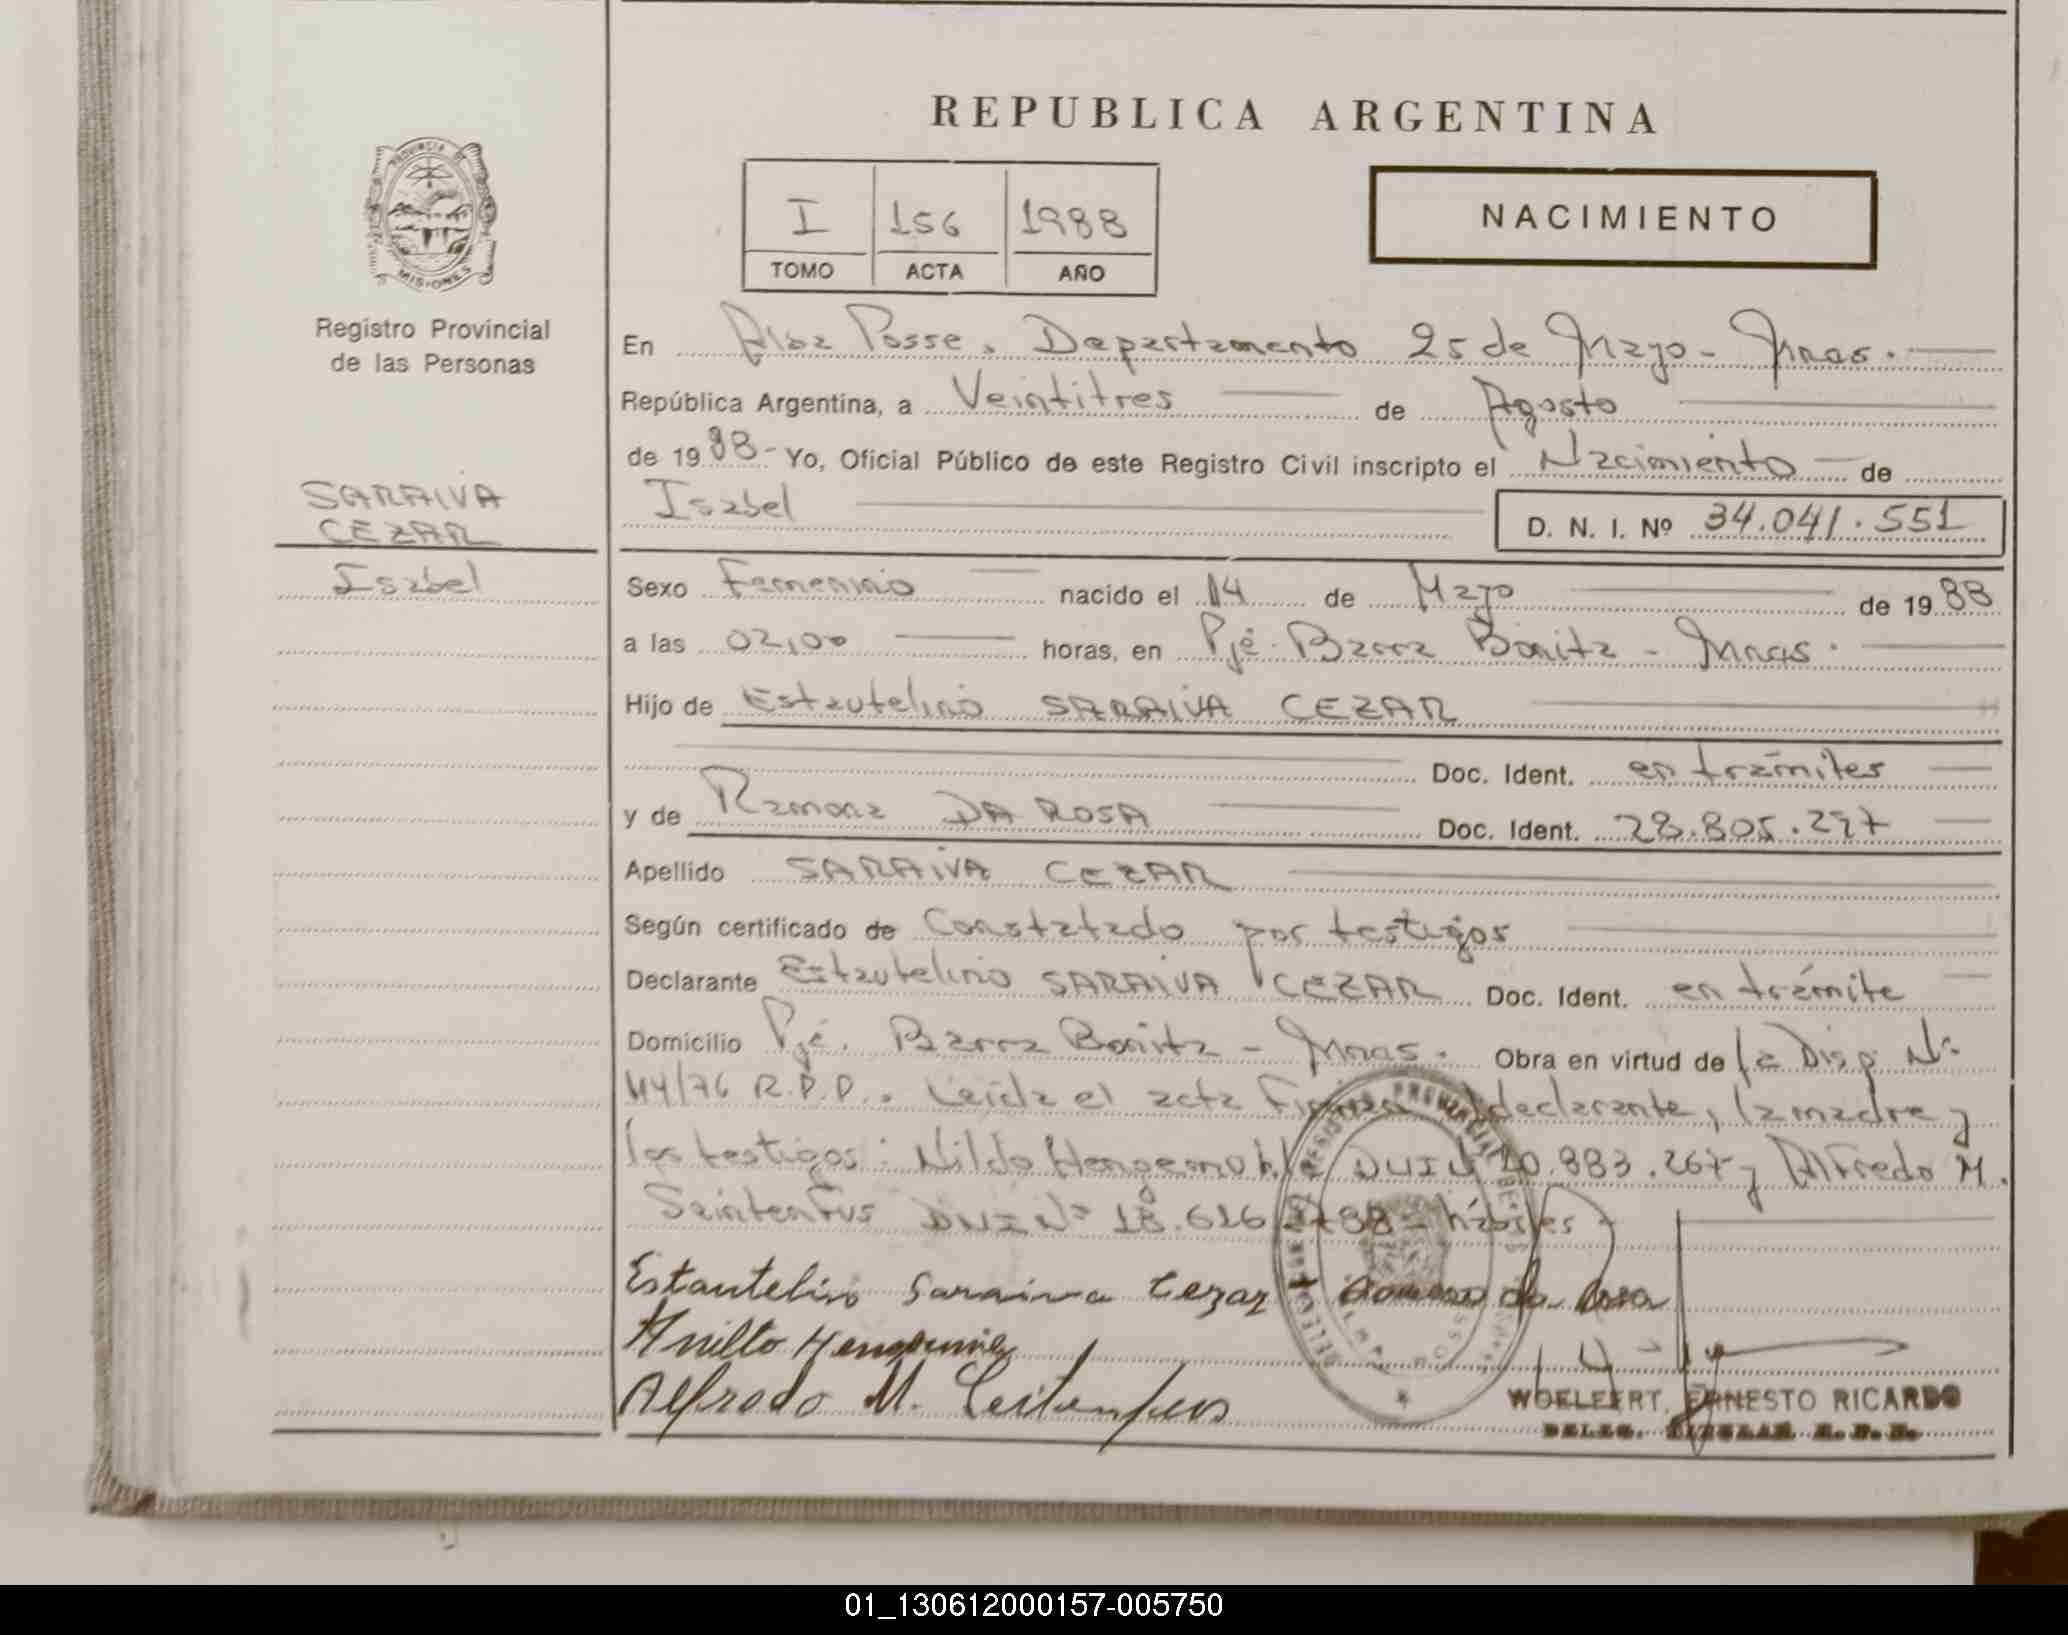 REPUBLICA ARGENTINA
PROVINCIA DE
MISIONES
Registro Provincial
de las Personas
I 156 1988
TOMO ACTA AÑO
NACIMIENTO
En Alba Posse. Departamento 25 de Mayo - Mnes.
República Argentina, a Veintitres de Agosto
de 1988 - Yo, Oficial Público de este Registro Civil inscripto el Nacimiento de
Isabel
D. N. I. Nº 34.041.551
SARAIVA
CEZAR
Isabel
Sexo Femenino nacido el 14 de Mayo de 1988
a las 02,00 horas, en Pje. Barra Bonita - Mnes.
Hijo de Estautelino SARAIVA CEZAR
Doc. Ident. en trámites
y de Ramona DA ROSA Doc. Ident. 28.805.297
Apellido SARAIVA CEZAR
Según certificado de Constatado por testigos
Declarante Estautelino SARAIVA CEZAR Doc. Ident. en trámite
Domicilio Pje. Barra Bonita - Mnes. Obra en virtud de la Disp. Nº
44/76 R.P.P.. Leída el acta Firman declarante, la madre y
los testigos: Nildo DNI 20.883.267 y Alfredo M.
DNI Nº 18.616.788 - hábiles
Estautelino Saraiva Cezar Ramona da Rosa
Alfredo M.
WOELFERT, ERNESTO RICARDO
DELEG. TITULAR R. P. P.
01_130612000157-005750